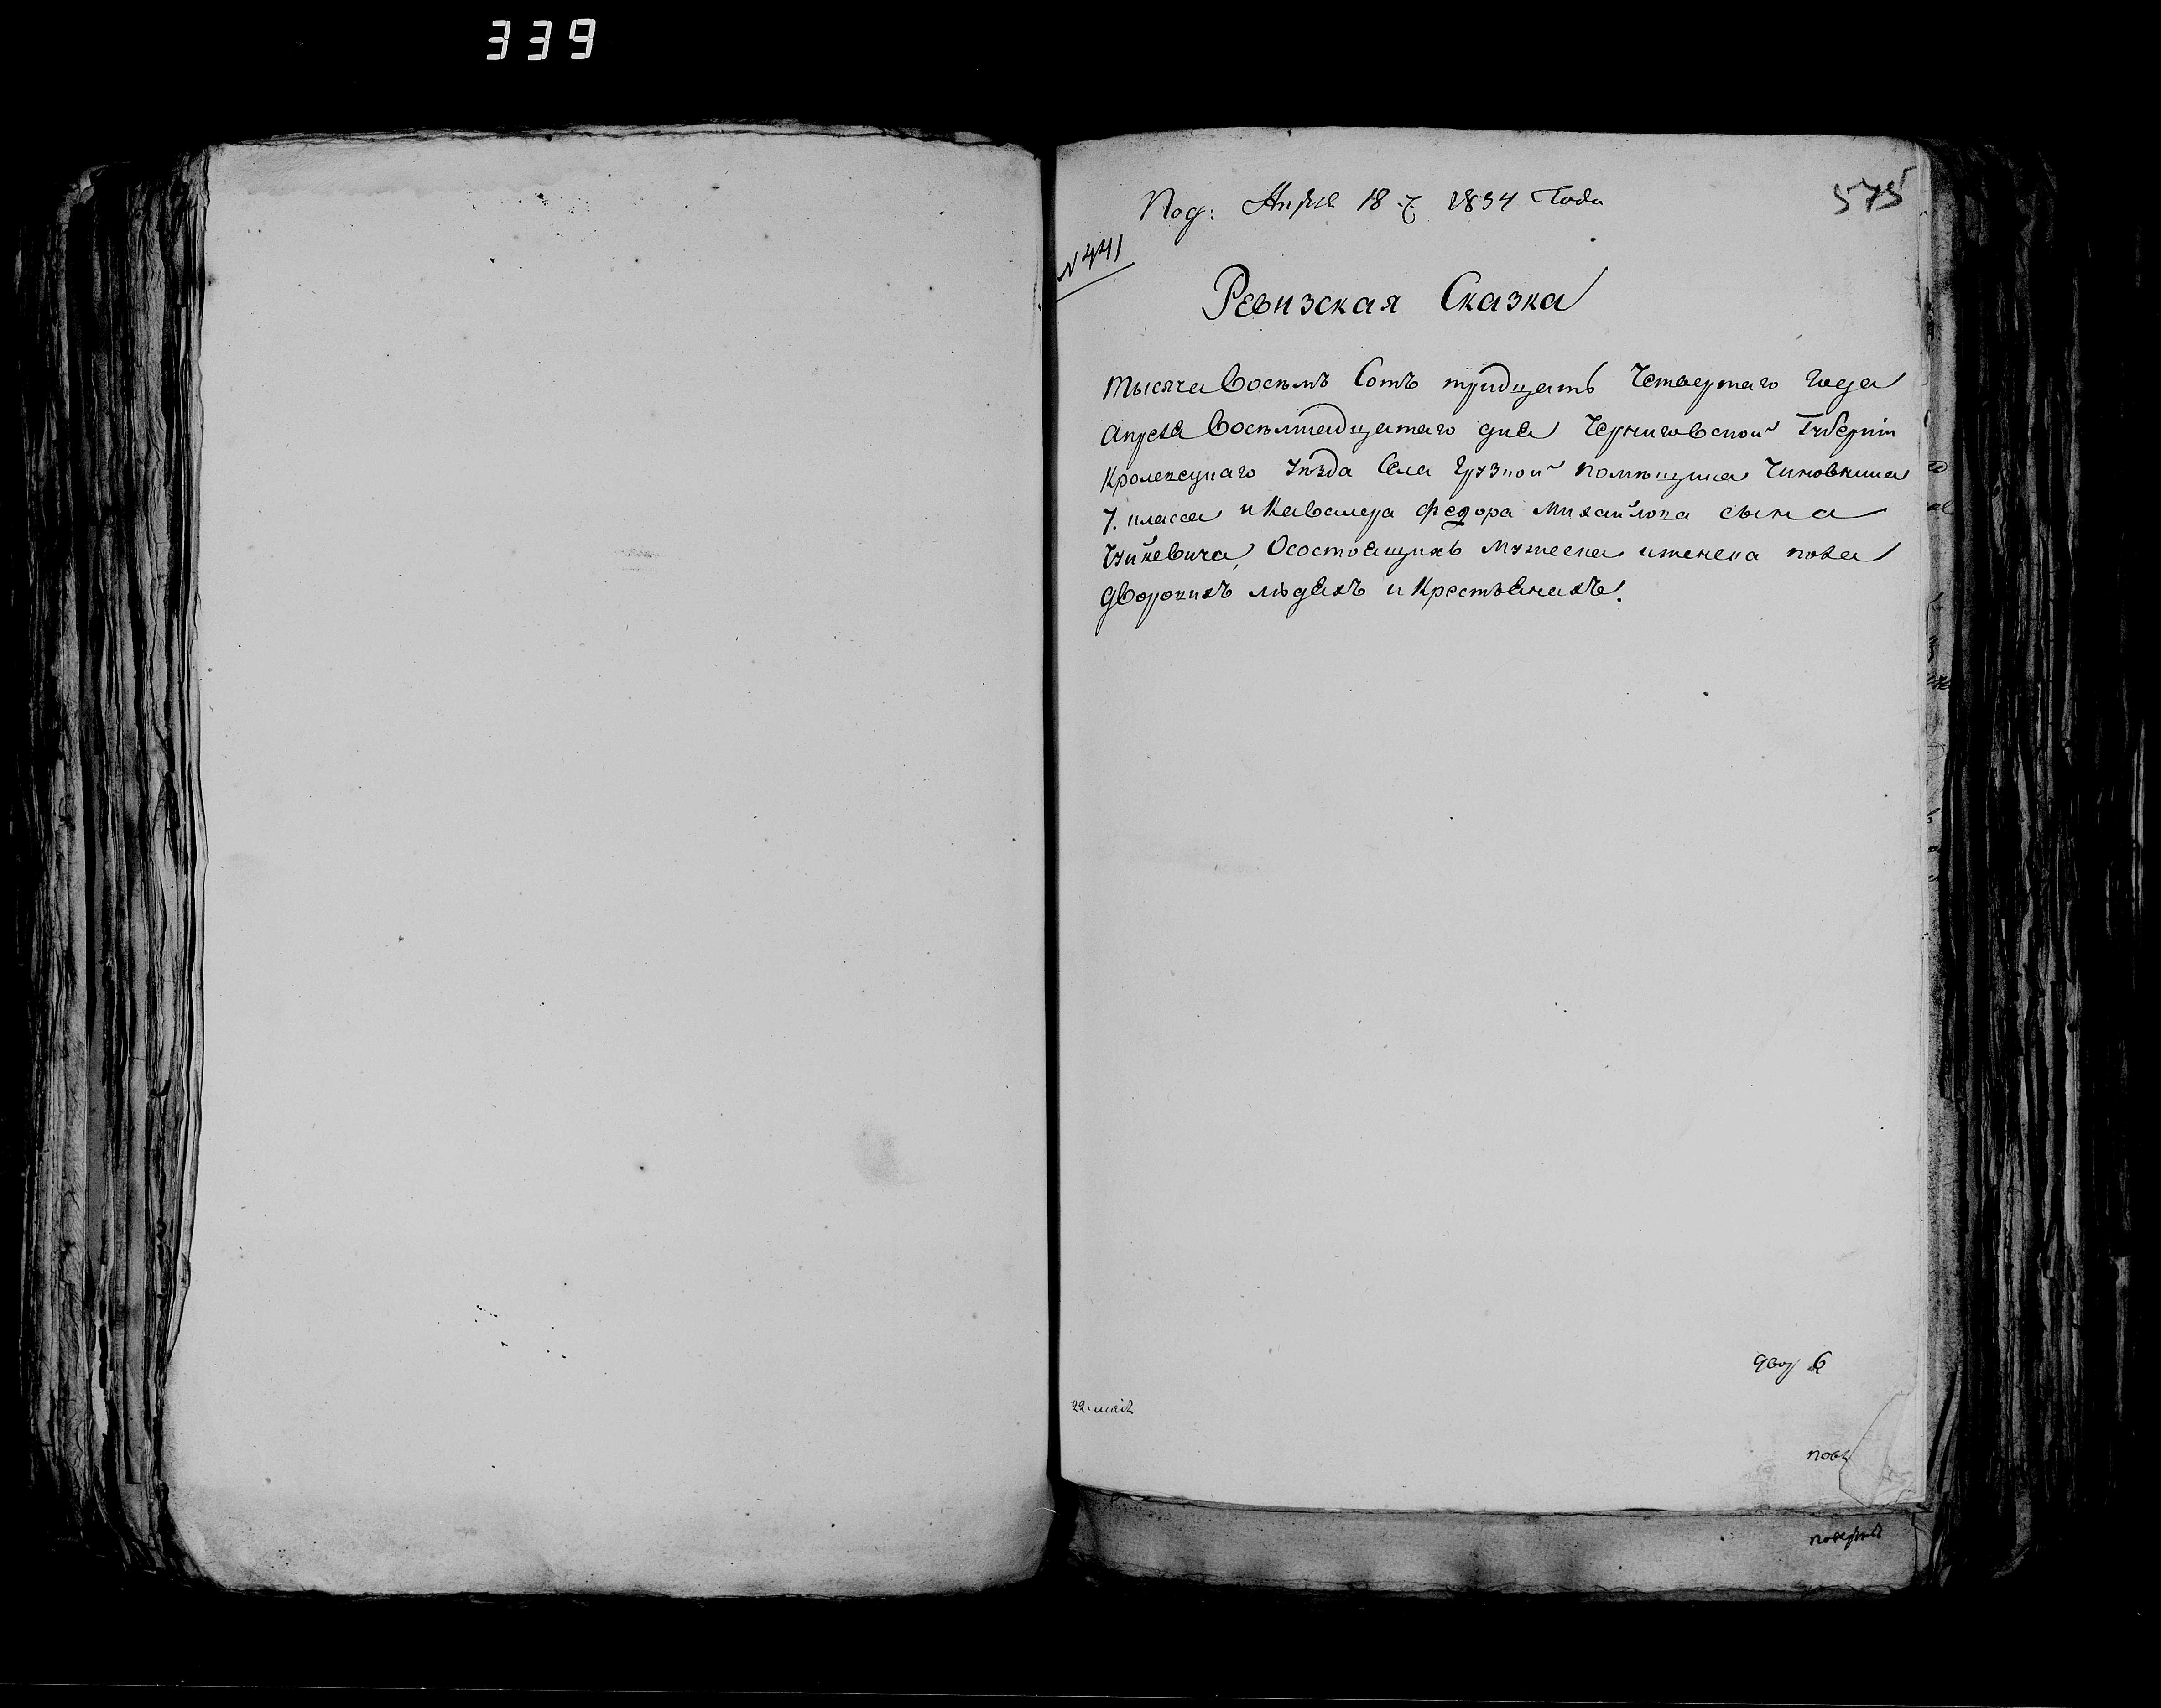 339
Под: Апреля 18 г 1834 Года
575
№ 441
Ревизская Сказка
Тысяча Восемъ Сотъ тридцать Четвертаго Года
Апреля Восемнадцатаго дня Черниговской Губерніи
Кролевецкаго Уезда Села Грузкой помещика Чиновника
7. класса и Кавалера Федора Михайлова сына
Осостоящихъ мужеска и женска пола
дворовихъ людяхъ и Крестьянахъ.
двор 6
22. маія
пов